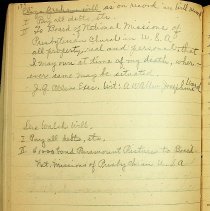 as on record in Will Book
I Pay all debts, etc.
II To Board of National Missions of
Presbyterian Church in U.S.A.
all property, real and personal, that
I may own at time of my death, wher-
ever same may be situated.
J. A. Allen Exec. Wit:
Sue Walsh Will
I Pay all debts, etc.
II Paramount Pictures to Board
Nat. Missions of Presby. Church U.S.A